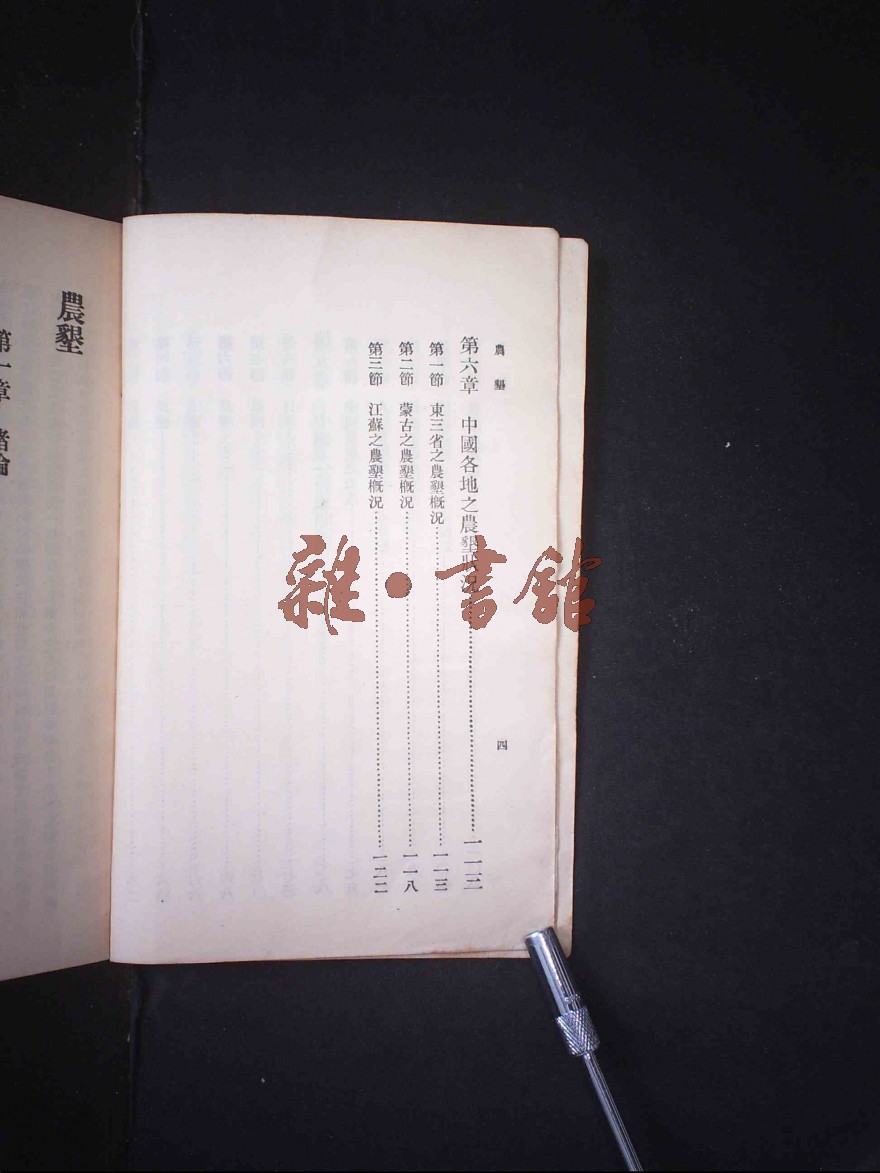 農墾
四
第六章 中國各地之農墾狀況……一一二
第一節 東三省之農墾概況……一一三
第二節 蒙古之農墾概況……一一八
第三節 江蘇之農墾概況……一二二
農墾
第一章 緒論
雜·書館